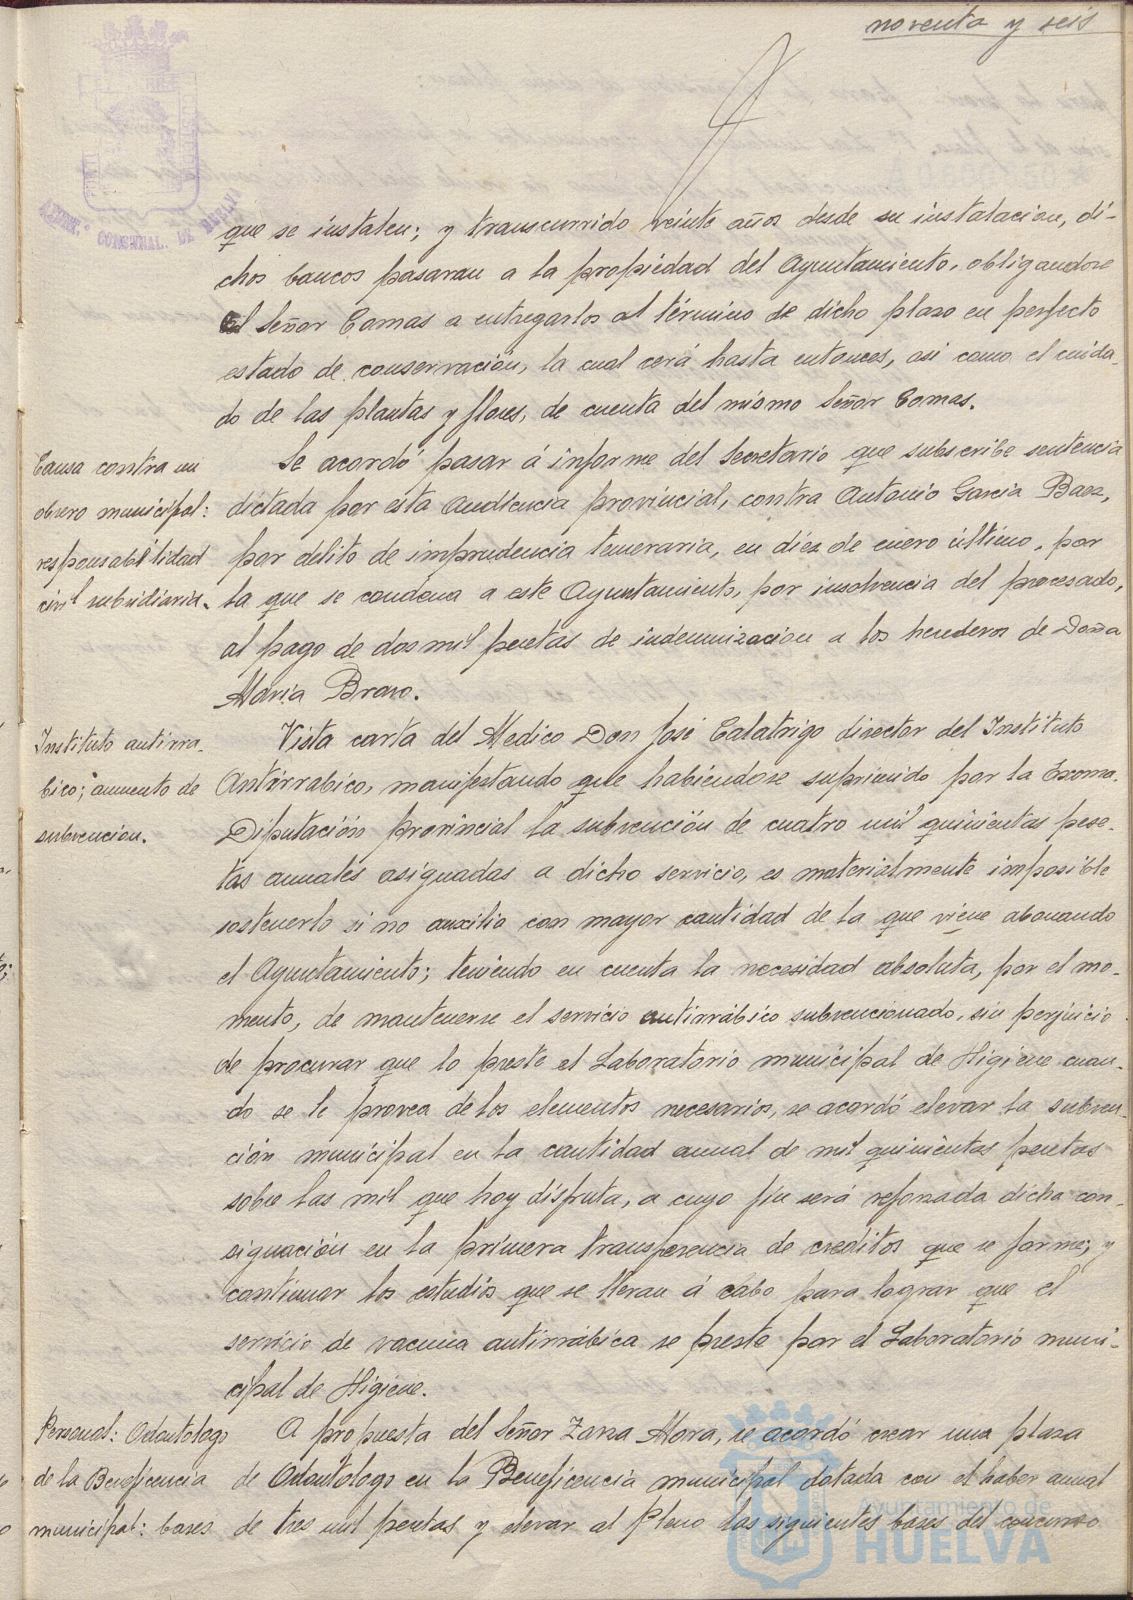 noventa y seis
que se instalen; y transcurrido veinte años desde su instalacion, di-
chos bancos pasaran a la propiedad del Ayuntamiento, obligandose
el Señor Comas a entregarlos al término de dicho plazo en perfecto
estado de conservación, la cual será hasta entonces, asi como el cuida-
do de las plantas y flores, de cuenta del mismo Señor Comas.
Causa contra un
obrero municipal:
responsabilidad
civil subsidiaria.
Se acordó pasar á informe del Secretario que subscribe sentencia
dictada por esta Audiencia provincial, contra Antonio Garcia Baez,
por delito de imprudencia temeraria, en diez de enero último, por
la que se condena a este Ayuntamiento, por insolvencia del procesado,
al pago de dos mil pesetas de indemnizacion a los herederos de Doña
Maria Bravo.
Instituto antirra-
bico; aumento de
subvencion.
Vista carta del Medico Don José Calatrigo director del Instituto
Antirrabico, manifestando que habiendose suprimido por la Excma.
Diputación provincial la subvención de cuatro mil quinientas pese-
tas anuales asignadas a dicho servicio, es materialmente imposible
sostenerlo si no auxilia con mayor cantidad de la que viene abonando
el Ayuntamiento; teniendo en cuenta la necesidad absoluta, por el mo-
mento, de mantenerse el servicio antirrábico subvencionado, sin perjuicio
de procurar que lo preste el Laboratorio municipal de Higiene cuan-
do se le provea de los elementos necesarios, se acordó elevar la subven-
ción municipal en la cantidad anual de mil quinientas pesetas
sobre las mil que hoy disfruta, a cuyo fin será reforzada dicha con-
signación en la primera transferencia de creditos que se forme; y
continuar los estudios que se llevan á cabo para lograr que el
servicio de vacuna antirrábica se preste por el Laboratorio muni-
cipal de Higiene.
Personal: Odontologo
de la Beneficencia
municipal: bases
A propuesta del Señor Zarza Mora, se acordó crear una plaza
de Odontologo en la Beneficencia municipal dotada con el haber anual
de tres mil pesetas y elevar al Pleno las siguientes bases del concurso
Ayuntamiento de
HUELVA